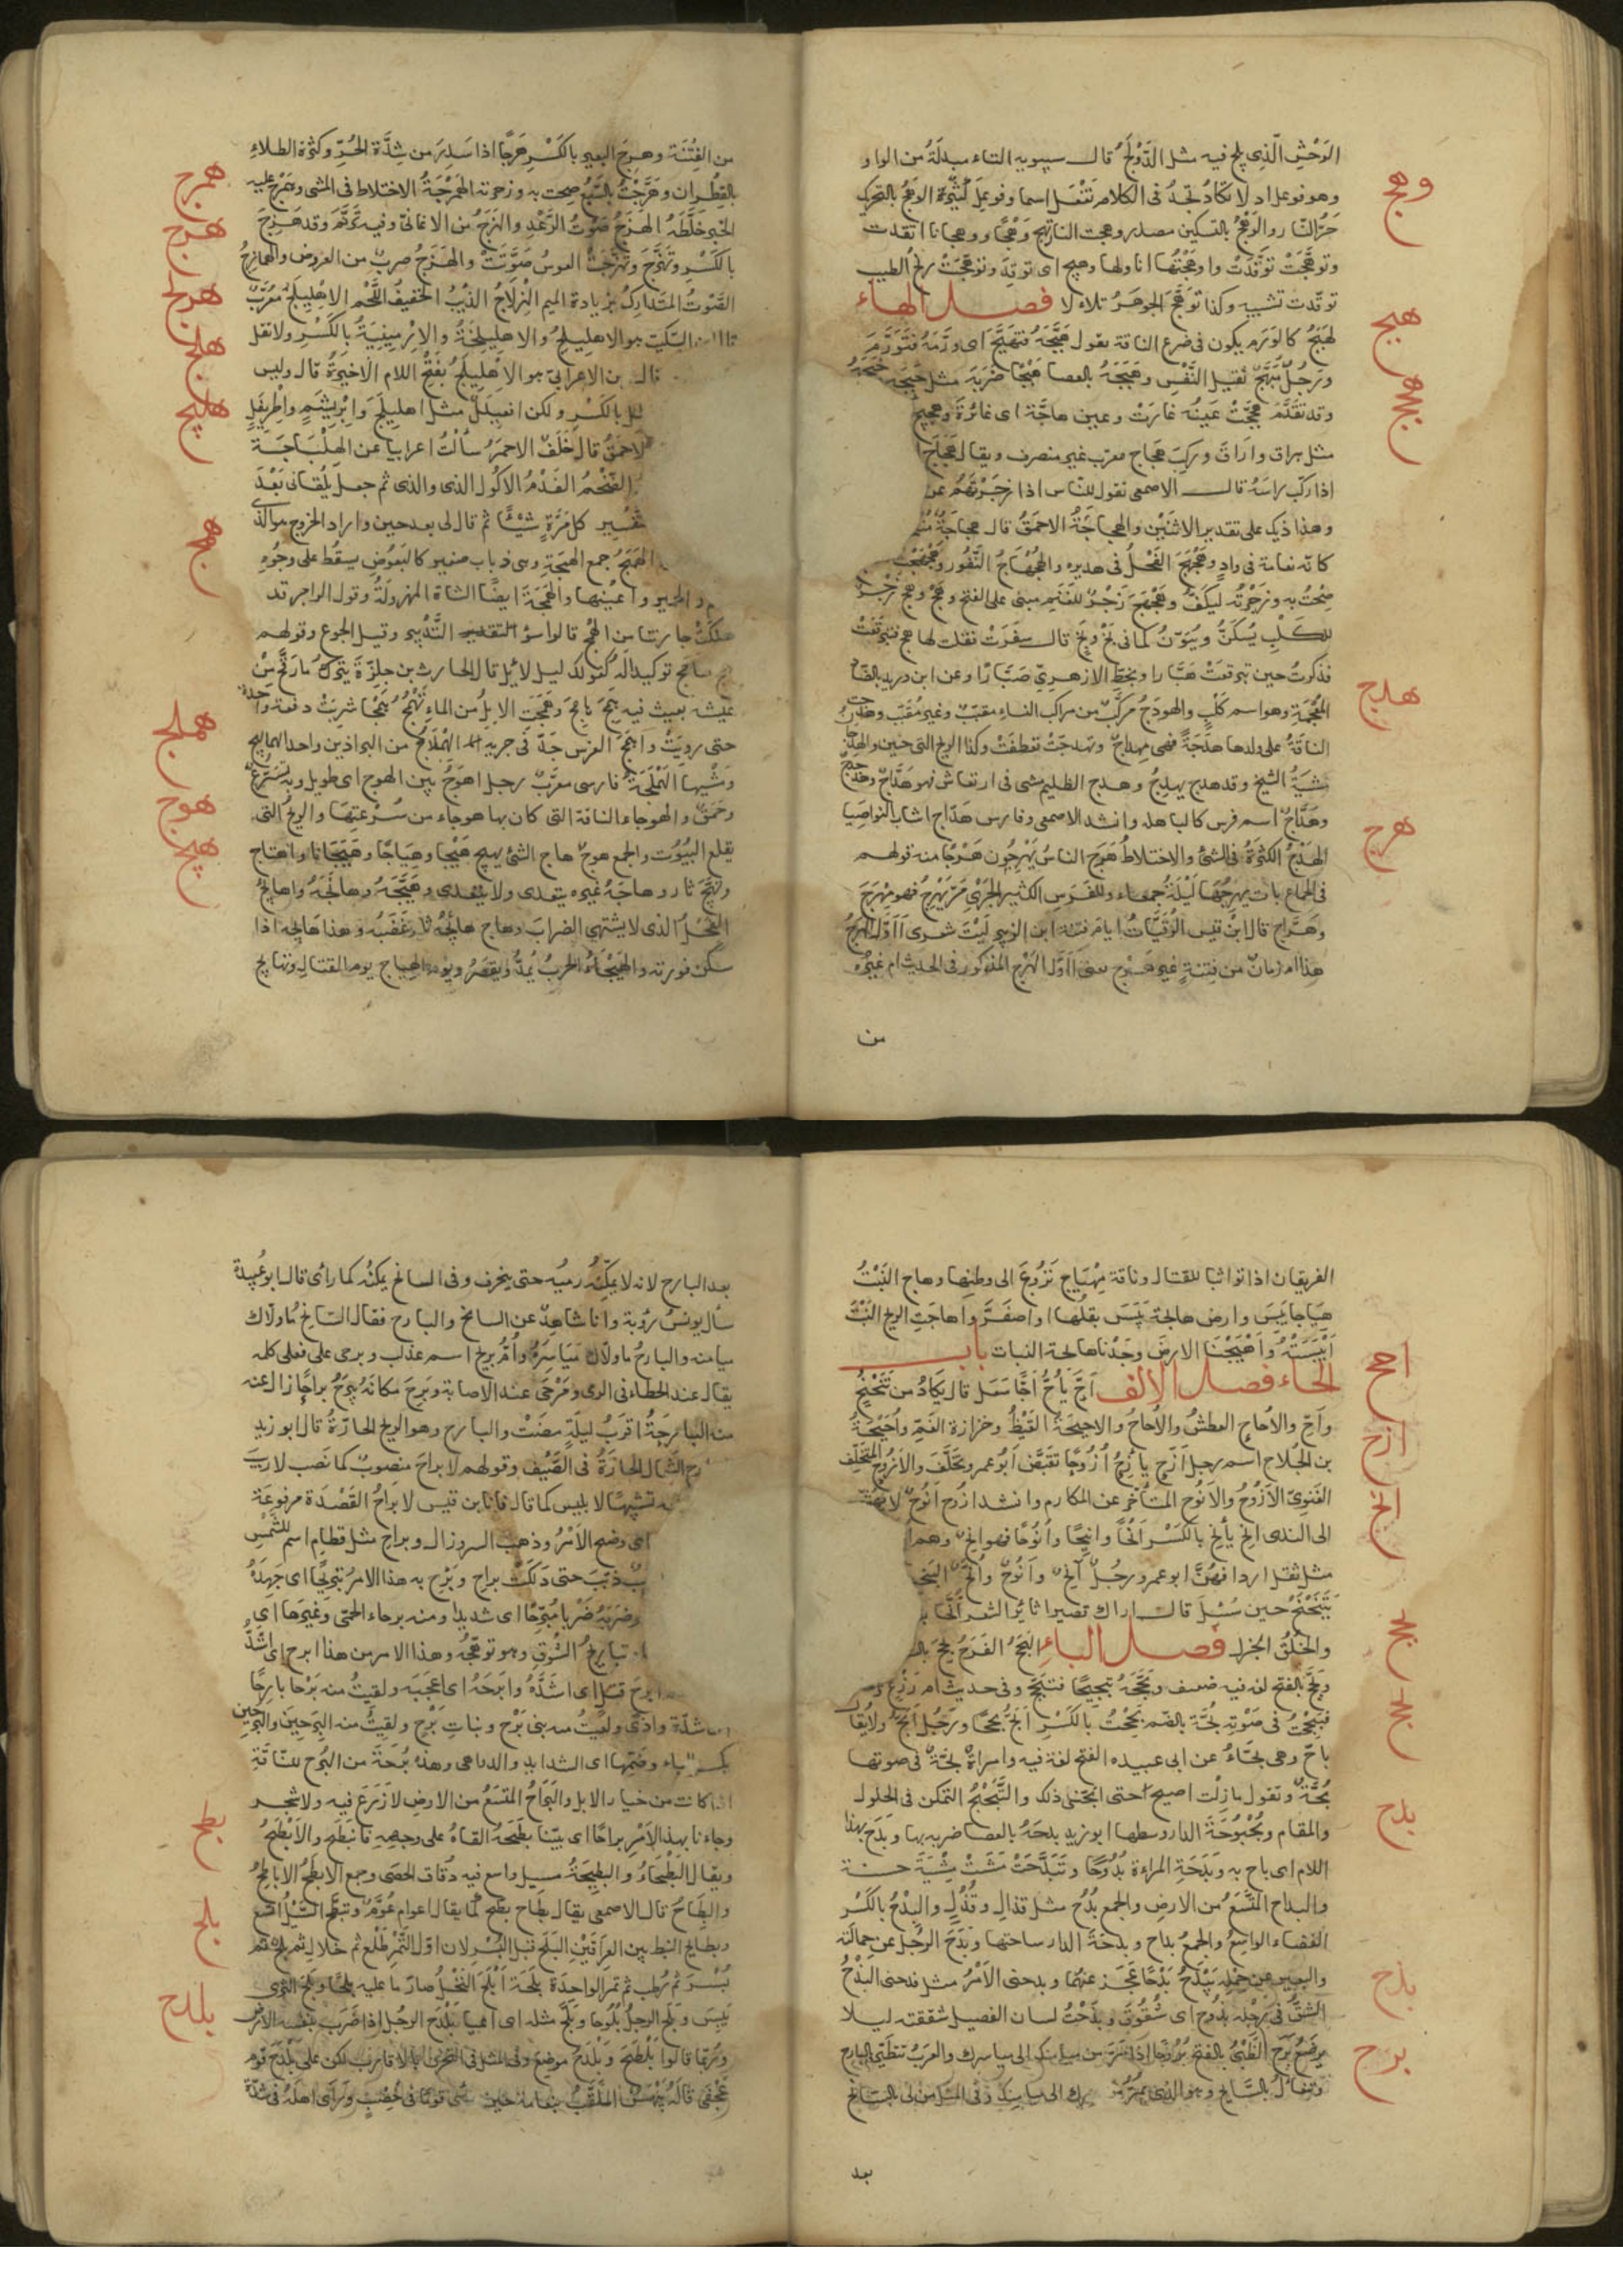 الوَحْشِ الّذِى يلج فيه مثل الدَّوْلَج قال سيبويه التاء مبدلَة من الواو
وهو فوعل اد لا تكادُ تجدُ فى الكلام تَفْعَل اسما وفوعل كثير الوَهَج بالتحريك
حَرُّ النّار والوَهْجُ بالتسكين مصدر وهجت النار تهج وَهْجًا ووهجانا اتقدت
وتوهَّجَتْ توقَّدَتْ واوهَجْتُها انا ولها وهيج اى توقد وتوهَّجَتْ ريحُ الطيب
توقّدت تشبيه وكذا توهَّجَ الجوهَرُ تلاءلا فصل الهاء
الهَبَجُ كالوَرَم يكون فى ضرع الناقة تقول هَبَّجَهُ فتهَبَّجَ اى ورَّمَهُ فتَوَرَّمَ
ورجُلٌ مُهَبَّجٌ ثقيل النَّفْسِ وهَبَجَهُ بالعصا هَبْجًا ضَرَبَهُ مثل حَبَجَهُ
وقد تقَدَّم هجَّتْ عَينُه غارَتْ وعين هاجَّة اى غائرة وهجيج
مثل هراق واراق وركِبَ هَجاج معرب غير منصرف ويقال هَجاجِ
اذا ركب راسَهُ قال الاصمعى تقول للناس اذا زجَرْتَهم عن
وهذا ذيك على تقدير الاثنَيْن والهجاجَةُ الاحمقُ قال هجاجَةٌ
كانّه نعامة فى وادٍ وهَجْهَجَ الفَحْلُ فى هديره والهُجْهاجُ النَّفُور وهَجْهَجْت
صِحْتُ به وزجَرْتُه ليَكُفّ وهَجْهَجَ زَجْرٌ للغَنَم مبنى على الفتح وهَجْ وهجٍ زَجْرٌ
للكَلْبِ يُسَكَّنُ ويُنَوَّنُ كما فى بَخْ وبَخٍ قال سفَرَتْ فقلت لها هج فتبرقعتْ
فذكرتُ حين تبرقعَتْ هَبَّارا وبخطّ الازهرىّ ضَبَّارًا وعن ابن دريد بالضّاد
المُعْجَمة وهو اسم كَلْب والهودَجُ مَرْكَبٌ من مراكب النساء مقبّبٌ وغير مُقَبّب وهدجت
الناقَةُ على ولدها هدَجةً فهى مِهداجٌ وتهدجَتْ تعطفَتْ وكذا الريح التى حَنين والهدج
مَشْيَةُ الشيخ وقد هدج يهدِجُ وهدج الظليم مشى فى ارتعاش فهو هَدّاجٌ
وهَدّاجٌ اسم فرس كان لباهلة وانشد الاصمعى وفارس هَدّاج اشاب النواصيا
الهَرْجُ الكثرَةُ فى الشئ والاختلاطُ هَرَج الناسُ يَهْرِجُون هَرْجًا منه قولهم
فى الجماع بات يهرِجُهَا لَيْلَةً جمعاء وللفرَس الكثير الجَرْىِ مرّ يَهْرِجُ فهو مِهْرَجَ
وهَرَّاج قال ابنُ قيس الرُقَيَّاتِ ايام فتنة ابن الزبير لَيْتَ شعرى أاَوّلُ الهَرْج
هذا ام زمانٌ من فِتنةٍ غير هَرْج يعنى أاوّل الهَرْج المذكور فى الحديث ام غيرُه
من
وهج
هبج
هجج
هدج
هرج
من الفِتْنَة وهرِجَ البعير بالكَسْر هَرَجًا اذا سَدِرَ من شِدَّة الحَرِّ وكثرة الطلاء
بالقِطْران وهَرَّجْتُ بالسَّبُع صِحت به وزجرته الهَمْرَجَةُ الاختلاط فى المشى وهَمْرَجَ عليه
الخبر خلَّطَهُ الهَزَجُ صَوْتُ الرَّعْدِ والهزَجُ من الاغانىّ وفيه تَرَنّم وقد هَزِجَ
بالكَسْر وتَهَزَّجَ وتهَزَّجَتْ القوسُ صَوَّتَتْ والهَزَجُ ضربٌ من العروض والهُزامِجُ
الصَّوتُ المتَدارِكُ بزيادة الميم الهِزْلاجُ الذِئبُ الخفيفُ اللَّحم الاهْلِيلَجُ مُعَرَّبٌ
السِّكيت هو الاهلِيلِجُ والاهلِيلِجَةُ والاِرْمِينِيَةُ بالكَسْر ولا تقل
قال بن الاعرابىّ هو الاهْلِيلَجُ بفَتْح اللام الاخيرةُ قال وليس
بالكَسْرِ ولكن افعِيلَلٌ مثل اهلِيلَجَ وابْرِيسَمٍ واطْرِيفَلٍ
الاحمَقُ قال خلَفٌ الاحمَرُ سألْتُ اعرابيا عن الهِلْبَاجَة
الضَّخْمُ الفَدْمُ الاكُول الذى والذى ثم جعل يَلْقانى بَعْدَ
تفْسِير كل مَرّةٍ شَيْئًا ثم قال لى بعد حين واراد الخروج هو الذى
الهَمَجُ جمع الهَمَجَةِ وهى ذباب صغير كالبَعُوضِ يسقُط على وجُوهِ
والحمير واعْيُنها والهَمَجَةُ ايضًا الشاة المهزولَةُ وقول الراجز قد
هلكَتْ جارتنا من الهَمَج قالوا سؤ التقدير التَّدْبير وقيل الجوع وقولهم
هَمَجٌ هامَج توكيد اله كقولك ليل لائل قال الحارث بن حِلِزَةَ يتركُ ما رَقَّحَ مِنْ
عَيْشه يعيث فيه هَمَجٌ هامِجَ وهَمَجَتِ الابلُ من الماءِ تَهْمُجُ هَمْجًا شرِبَتْ دفعة واحدة
حتى روِيَتْ واهمَجَ الفرَس جَدّ فى جريه الهِمْلاجُ من البراذين واحد الهماليج
ومَشْيها الهَمْلَجَةُ فارسى معرّبٌ رجل اهوَجُ بَيّن الهوج اى طويل وبه تسَرُّعٌ
وحَمَقٌ والهوجاء الناقة التى كان بها هوجاء من سُرْعَتِها والريحُ التى
يقلع البُيُوت والجمع هوجٌ هاج الشئ يهيج هَيْجا وهَياجًا وهَيَجَانا واهتاج
وتهَيَّجَ ثار وهاجَهُ غيره يتعدى ولا يتعدى وهَيَّجَهُ وهايَجَهُ والهايج
الفَحْلُ الذى لا يشتهى الضرابَ وهاج هايُجُه ثار غضَبُه وهذا هايِجُه اذا
سكن فورته والهَيْجاءُ الحربُ يُمدُّ ويقصَرُ ويوم الهياج يوم القتال وتهايج
همرج
هزج
هزلج
هلج
هلبج
همج
هملج
هوج
هيج
الفريقان اذا تواثبا للقتال وناقة مِهْيَاج نَزُوعٌ الى وطنِها وهاج النَبْتُ
هِيَاجا يَبِسَ وارض هايجَة يَبِسَ بقلُها او اصفَرَّ واهاجَتِ الريح النَبْتَ
اَيْبَسَتْهُ واَهْيَجْنا الارضَ وجَدْناها هايجة النبات باب
الحاء فصل الالف اَحَّ يأحُّ اَحًّا سَعَل قال يكادُ من تَنَحْنُحٍ
واَحِّ والاُحاحِ العطشُ والاُحاحُ والاحيحَةُ الغَيْظُ وحَزازة الغَمّ واُحَيْحَةُ
بن الجُلاح اسم رجل اَزَحَ يأزِحُ اُزُوحًا تقَبَّض اَبُو عمرو تخَلَّفَ والاَزُوحُ المتخلّف
الغنوىّ الاَزُوحُ والاَنُوح المتأخّر عن المكارم وانشد ازُوح اَنُوحٌ لا يَهَشُّ
الى الندى انح يأنح بالكَسْر اَنْحًا وانيحًا واُنُوحًا فهو انحٌ وهم
مثل ثقل ابو عمرو رجُلٌ آنِحٌ واَنُوحٌ
يتَنَحْنَحُ حين سُئِلَ قال اراك قصيرا ثائر الشعر
والخُلُقُ الجزل فصل الباء البَجَحُ الفَرَحُ بَجِحَ
وبَجَح بالفتح لغه فيه ضعيف وبَجَّحَهُ تبجيحًا فتبَجَّح وفى حديث ام زَرْع
فبَجَحْتُ فى صَوْتِه بُحَّةٌ بالضم بَحِحْتُ بالكَسْر اَبَحُّ بحَحًا ورَجُلٌ اَبَحُّ ولا يُقال
باحّ وهى بحَّاءُ عن ابى عبيده الفتح لغة فيه وامراةٌ بحَّةٌ فى صوتها
بُحَّةٌ وتقول مازلْت اصيح حتى ابحَّنى ذلك والتَّبَحْبُحُ التمكن فى الحلول
والمقام وبُحْبُوحَةُ الدار وسطها ابو زيد بدحَهُ بالعصا ضربه بها وبَدَح بهذا
اللام اى باح به وبَدَحَةِ المراءة بُدُوحًا وتَبَدَّحَتْ مَشَتْ مِشْيَةً حسنة
والبداح المتّسَعُ من الارض والجمع بُدُحٌ مثل قذال وقُذُلٍ والبِدْحُ بالكَسْر
الفضاء الواسِعُ والجمعُ بداح وبدحَةُ الدار ساحتها وبَدَحَ الرجُلُ عن حمالَته
والبعير عن حِمْله يَبْدَحُ بَدْحًا عَجَز عنهما وبدحنى الاَمْرُ مثل فدحنى البَذْحُ
الشقُّ فى رجْلِه بذُوح اى شُقُوقٌ وبذَحْتُ لسان الفصيل شققته ليلا
يرضَعُ بَرَحَ الظَّبْىُ بالفتح بُرُوحًا اذا مَرَّ من ميامنك الى مياسرك والعَرَبُ تتطَيّرُ بالبارح
وتتفاءلُ بالسّانِح وهو الذى يمرّ الى ميامِنِكَ وفى المثل من لى بالسانح
بعد
احح
ازح
انح
بجح
بحح
بدح
بذح
برح
بعد البارح لانه لا يمكّنُه رميُه حتى ينحرف وفى السانح يمكنُه كما راى قال ابو عُبيدة
سأل يونسُ رؤبة وانا شاهِدٌ عن السانح والبارح فقال السّانِحُ ما ولّاك
ميامنه والبارحُ ما ولّاك مَيَاسِرَهُ واُمّ بريح اسم عذب وبرحى على فعلى كلمه
يقال عند الخطاء فى الرمى ومَرْحَى عند الاصابة وبَرِحَ مكانَهُ يبرَحُ براحًا زال عنه
منه البارِحَةُ اقرَبُ ليلَةٍ مضَتْ والبارح وهو الريح الحارّةُ قال ابو زيد
الشمال الحارّةُ فى الصَّيف وقولهم لا براحَ منصوبٌ كما نصب لا ريبَ
تشبيهًا لا بليس كما قال فانا ابن قيس لا بَراحُ القَصْدَة مرفوعَة
اى وضح الاَمْرُ وذهب السر وزال وبراحِ مثل قطامِ اسم للشَّمْسِ
ذبّبَ حتى دَلَكَتْ براحِ وبَرَّح به هذا الامرُ تبريحًا اى جهَدَهُ
وضرَبَهُ ضَرْبا مُبَرّحًا اى شديدا ومنه برحاء الحمّى وغيرها اى
تباريحُ الشَّوق وهو توهّجُه وهذا الامر من هذا ابرح اى اشَدُّ
ابرحَ قتل اى اشدّهُ وابرَحَهُ اى اعجبَه ولقيتُ منه بَرْحا بارِحًا
شدّة واذًى ولقيتُ منه بنى بَرْح وبنات بَرْح ولقيتُ منه البِرَحِينَ والبُرَحينَ
بكسر الباء وضَمّها اى الشدايد والدواهى وهذه بُرْحَةٌ من البُرَح للنّاقَةِ
اذا كانت من خيار الابل والبَرَاحُ المتّسَعُ من الارض لا زَرْعَ فيه ولا شجر
وجاءنا بهذا الاَمْر براحًا اى بيّنا بطَحهُ القاهُ على وجهه فانبَطَحَ والاَبْطَحُ
ويقال البَطْحاءُ والبطِيحَةُ مسيل واسع فيه دُقاق الحصَى وجمع الابطَحُ الاباطِحُ
والبِطَاحُ قال الاصمعى يقال بطاح بطّحٌ كما يقال اعوام عُوَّمٌ وتبَطّحَ السَّيْلُ اتّسَعَ
وبطايح النبط بين العِراقَيْنِ البَلَح قبل البُسْر لان اوّل التَّمْر طَلْع ثم خلال ثم بلح ثم
بُسْرٌ ثم رُطب ثم تمْر الواحدَةُ بلَحَة اَبْلَحَ النَخْلُ صار ما عليه بلحًا وبَلَحَ الثرى
يَبِسَ وبَلَحَ الرجلُ بُلُوحًا وبَلَّحَ مثله اى اعيا بَلْدَحَ الرجُل اذا ضَرَبَ بنفسه الاَرْض
ورُبّما قالوا بَلْطَحَ وبَلْدَحُ موضع وفى المثل فى التحزن بالاقارب لكن على بَلْدَحَ قَوْم
عَجْفَى قالَهُ بَيْهَسٌ المُلَقَّبُ بنعامة حين راى قومًا فى خِصْبٍ وراى اهلَهُ فى شدّة
بطح
بلح
بلدح